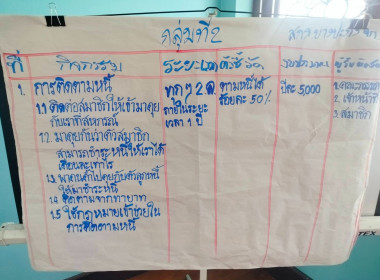 กลุ่มที่2
ที่ กิจกรรม ระยะเวลา ตัวชี้วัด งบประมาณ
1. การติดตามหนี้ ทุกๆ 2 ด. ตามหนี้ได้ ปีละ 5,000
1.1 ติดต่อสมาชิกให้เข้ามาคุย ภายในระยะ ร้อยละ 50% 2. เจ้าหน้าที่
กับเราที่สหกรณ์ เวลา 1 ปี 3. สมาชิก
1.2 มาคุยกันว่าตัวสมาชิก
สามารถชำระหนี้ให้เราได้
เดือนละเท่าไร
1.3 มาคนค้ำไปคุยกับตัวลูกหนี้
ให้มาชำระหนี้
1.4 ติดตามจากทายาท
1.5 ใช้กฎหมายเข้าช่วยใน
การติดตามหนี้